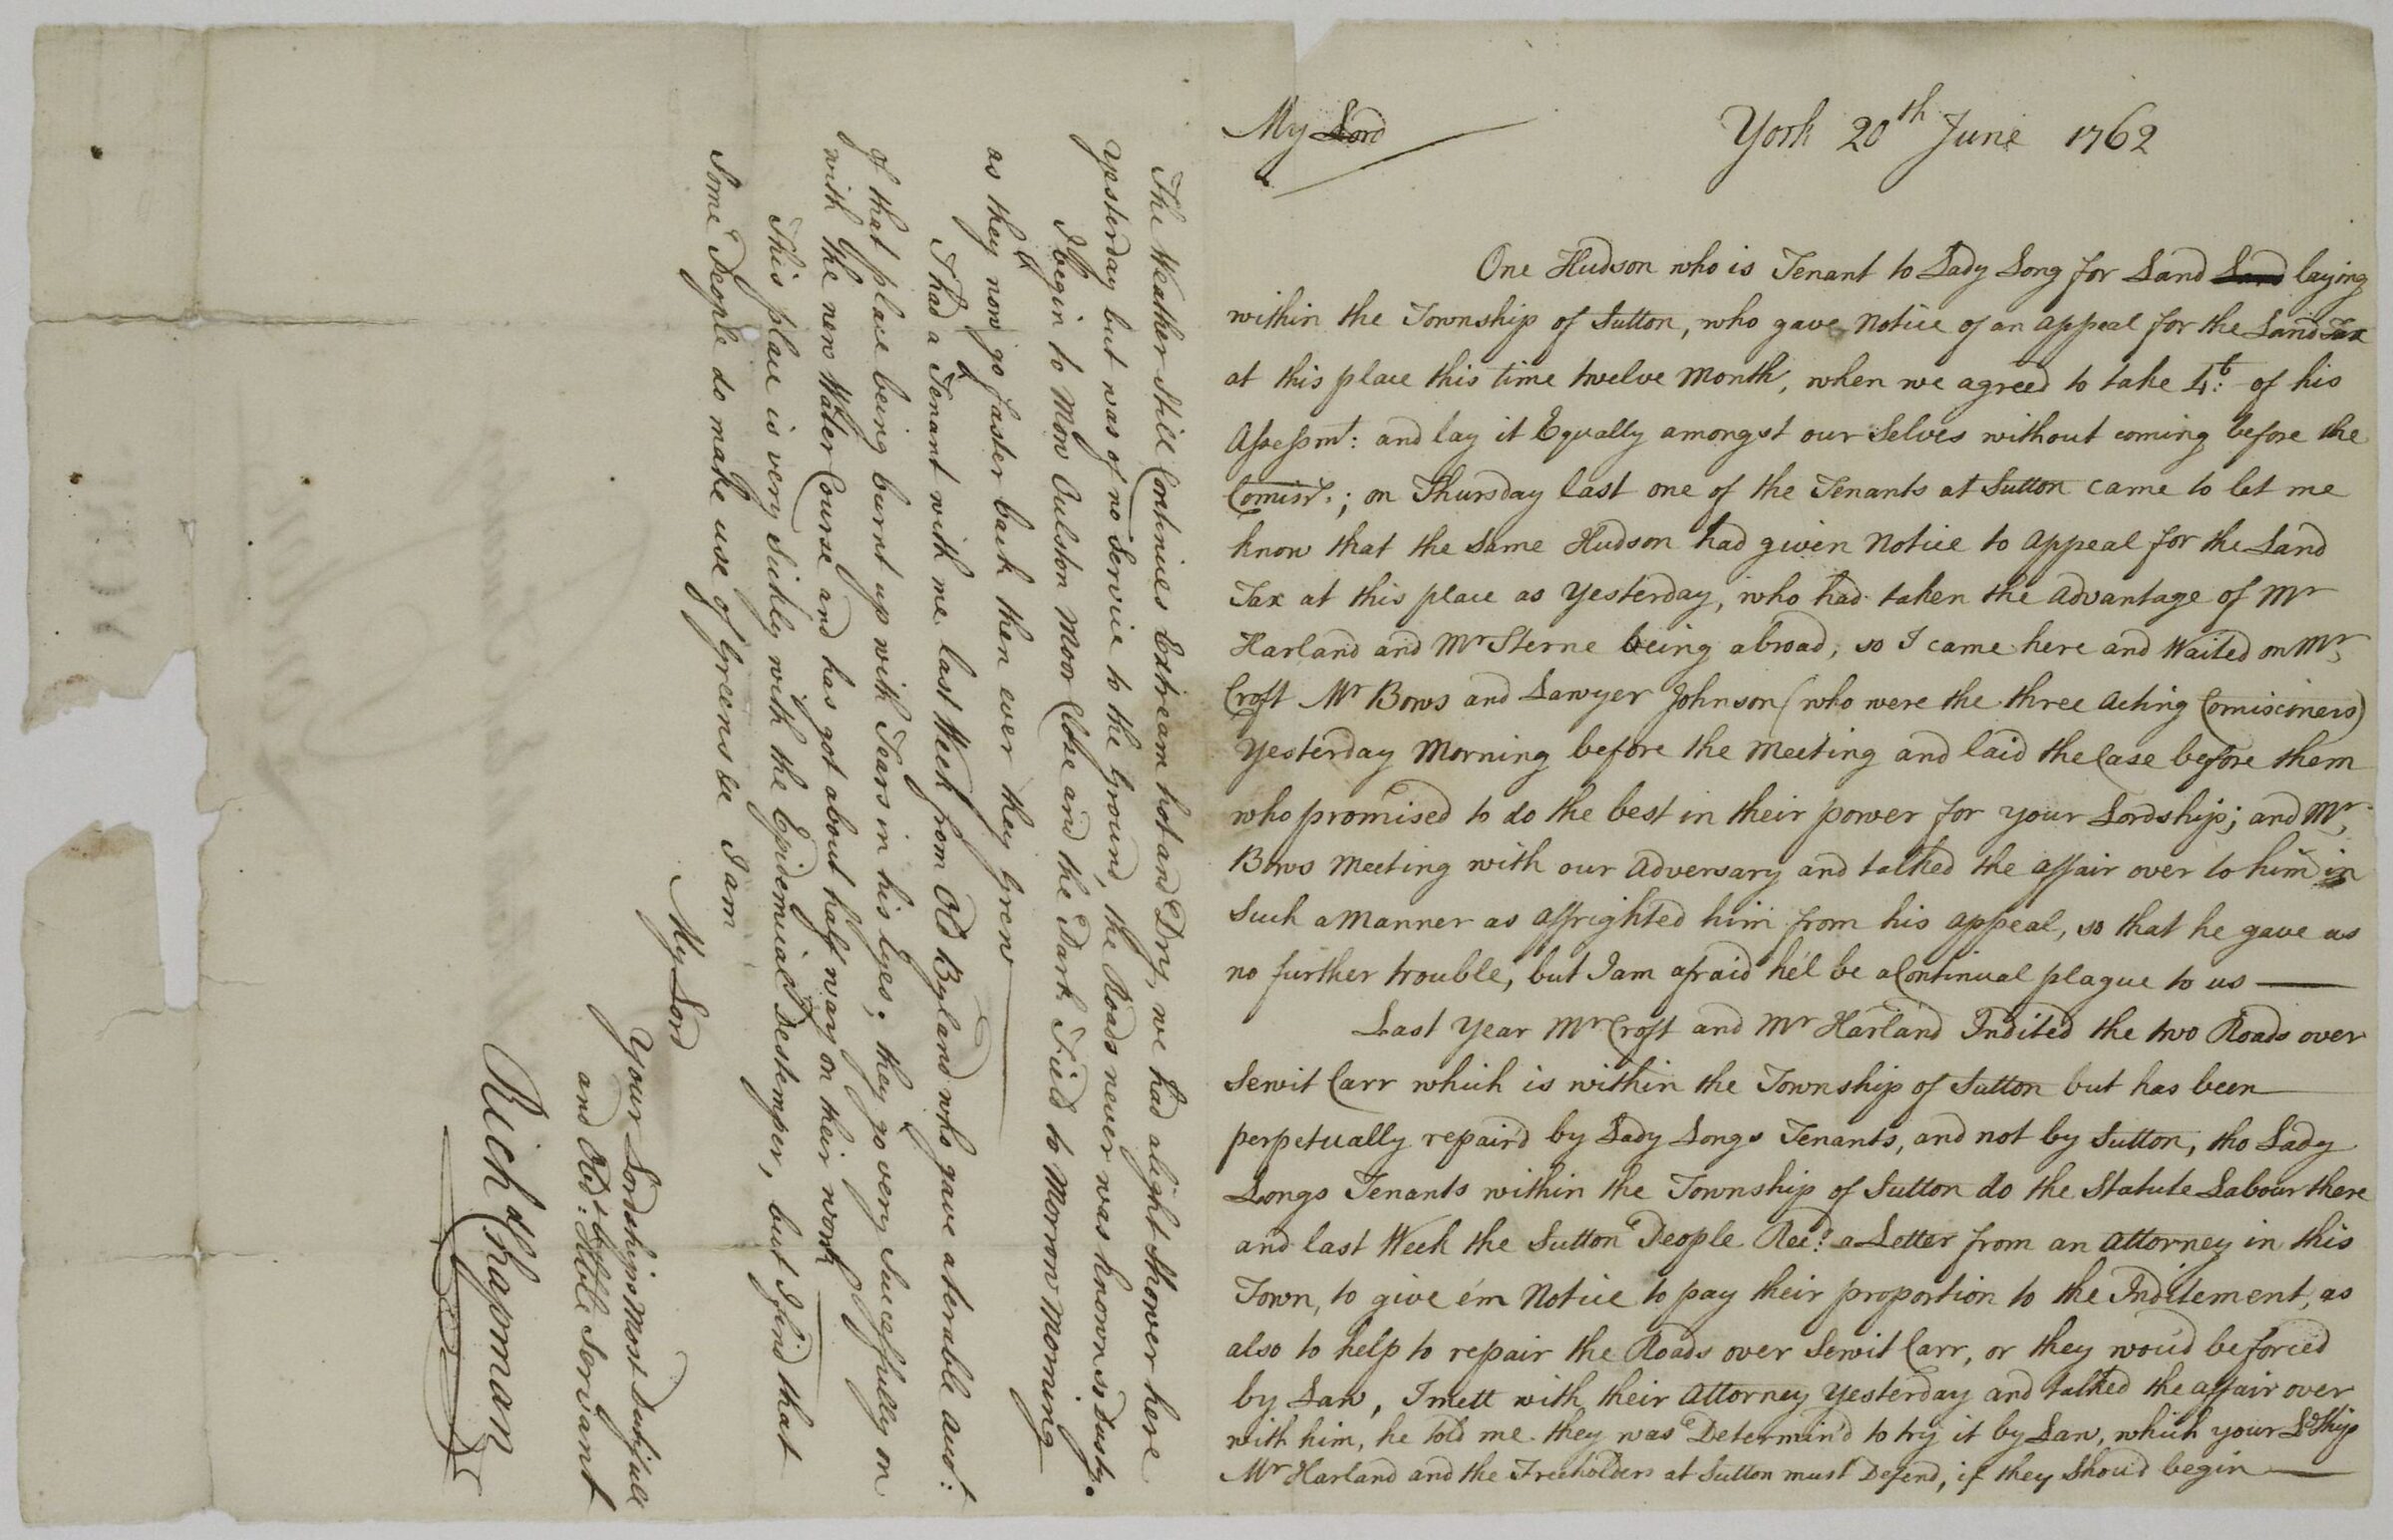 My Lord
York 20th June 1762
One Hudson who is Tenant to Lady Long for Land Land laying
within the Township of Sutton, who gave Notice of an appeal for the Land Tax
at this place this time twelve Month, when we agreed to take 4:t of his
Assessmt: and lay it Equally amongst our Selves without coming before the
Comisrs.; on Thursday last one of the Tenants at Sutton came to let me
know that the same Hudson had given Notice to appeal for the Land
Tax at this place as Yesterday, who had taken the advantage of Mr
Harland and Mr Sterne being abroad, so I came here and Waited on Mr,
Croft Mr Bows and Lawyer Johnson (who were the three acting Comisioners)
Yesterday Morning before the Meeting and laid the Case before them
who promised to do the best in their power for your Lordship; and Mr,
Bows Meeting with our adversary and talked the affair over to him in
such a Manner as affrighted him from his appeal, so that he gave us
no further trouble, but I am afraid he'l be a Continual plague to us —
Last Year Mr Croft and Mr Harland Indited the two Roads over
Sewit Carr which is within the Township of Sutton but has been
perpetually repair'd by Lady Longs Tenants, and not by Sutton, tho Lady
Longs Tenants within the Township of Sutton do the Statute Labour there
and last Week the Sutton People Rec'd a Letter from an attorney in this
Town, to give e'm Notice to pay their proportion to the Inditement, as
also to help to repair the Roads over Sewit Carr, or they wou'd be forced
by Law, I mett with their attorney Yesterday and talked the affair over
with him, he told me they was Determin'd to try it by Law, which your Ldship
Mr Harland and the Freeholders at Sutton must Defend, if they Shou'd begin —
The Weather Still Continues Extream hot and Dry, we had a light Shower here
Yesterday but was of no Service to the Ground, the Roads never was known so Dusty.
I begin to Mow Oulston Moor Close and the Dark Field to Morrow Morning
as they now go faster back then ever they Grew —
I had a Tenant with me last Week from Old Byland who gave a terable acct:
of that place being burnt up with Tears in his Eyes; they go very Sucessfully on
with the new Water Course and has got about half way on their work —
This place is very Sickly with the Epidemical Destemper, but I find that
Some People do make use of Greens &c I am
My Lord
Your Lordships Most Dutyfull
and Obdt: Hble Servant
Richd Chapman